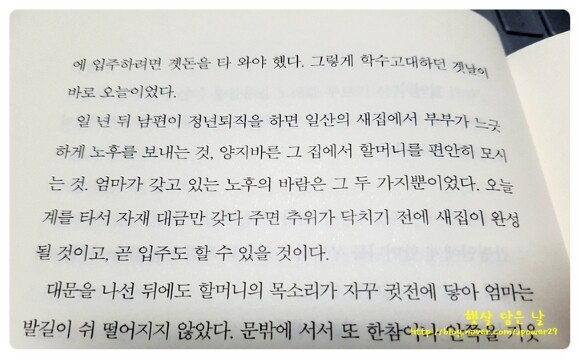 에 입주하려면 곗돈을 타 와야 했다. 그렇게 학수고대하던 곗날이
바로 오늘이었다.
일 년 뒤 남편이 정년퇴직을 하면 일산의 새집에서 부부가 느긋
하게 노후를 보내는 것, 양지바른 그 집에서 할머니를 편안히 모시
는 것. 엄마가 갖고 있는 노후의 바람은 그 두 가지뿐이었다. 오늘
계를 타서 자재 대금만 갖다 주면 추위가 닥치기 전에 새집이 완성
될 것이고, 곧 입주도 할 수 있을 것이다.
대문을 나선 뒤에도 할머니의 목소리가 자꾸 귓전에 닿아 엄마는
발길이 쉬 떨어지지 않았다. 문밖에 서서 또 한참이나
햇살 담은 날
http://blog.naver.com/apower29